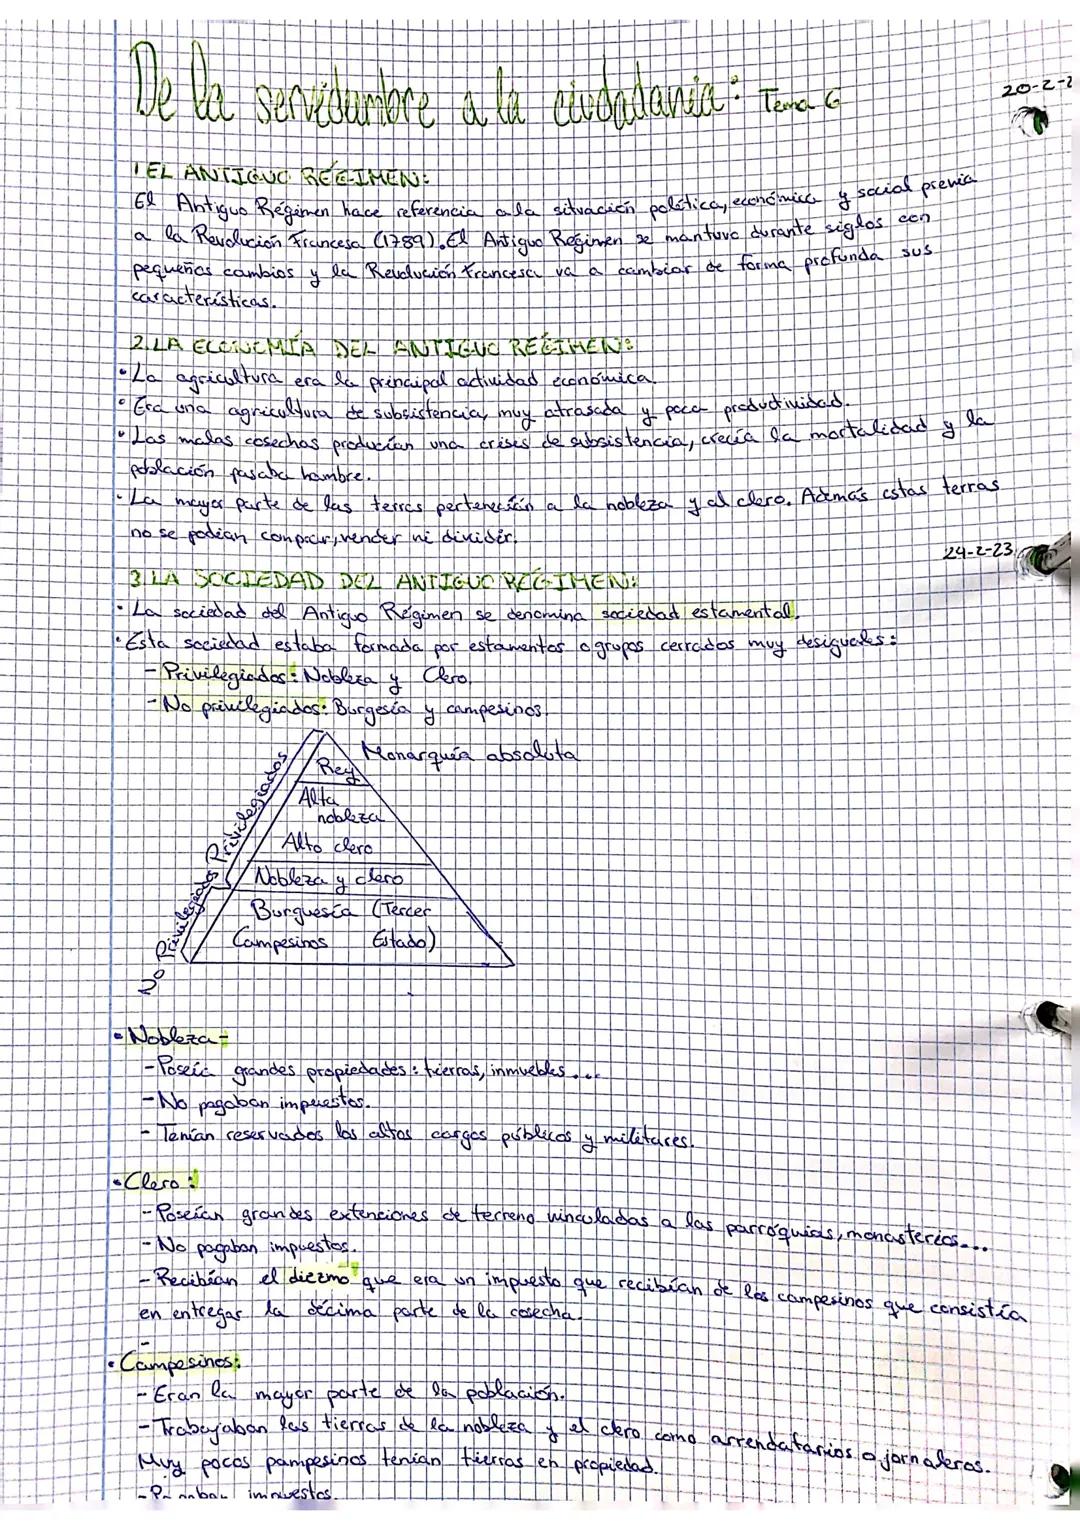 De la servidumbre a la ciudadanía: Tema 6
20-2-2
1 EL ANTIGUO RÉGIMEN:
El Antiguo Régimen hace referencia a la situación política, económica y social previa
a la Revolución Francesa (1789). El Antiguo Régimen se mantuvo durante siglos con
pequeños cambios y la Revolución Francesa va a cambiar de forma profunda sus
características.
2. LA ECONOMÍA DEL ANTIGUO RÉGIMEN:
• La agricultura era la principal actividad económica.
• Era una agricultura de subsistencia, muy atrasada y poca productividad.
• Las malas cosechas producían una crisis de subsistencia, crecía la mortalidad y la
población pasaba hambre.
• La mayor parte de las terres pertenecían a la nobleza y al clero. Además estas terras
no se podían comprar, vender ni dividir.
24-2-23
3. LA SOCIEDAD DEL ANTIGUO RÉGIMEN:
• La sociedad del Antiguo Régimen se denomina sociedad estamental.
• Esta sociedad estaba formada por estamentos o grupos cerrados muy desiguales:
- Privilegiados: Nobleza y Clero.
- No privilegiados: Burgesía y campesinos.
Monarquía absoluta
Rey
Alta
nobleza
Alto clero
Nobleza y clero
Burguesía (Tercer
Campesinos Estado)
Privilegiados
Nº Privilegiados
• Nobleza-
- Poseía grandes propiedades: tierras, inmuebles....
- No pagaban impuestos.
- Tenían reservados los altos cargos públicos y militares.
• Clero:
- Poseían grandes extenciones de terreno vinculadas a las parróquias, monasterios...
- No pagaban impuestos.
- Recibían el diezmo que era un impuesto que recibían de los campesinos que consistía
en entregar la décima parte de la cosecha.
-
• Campesinos:
- Eran la mayor parte de la población.
- Trabajaban las tierras de la nobleza y el clero como arrendatarios o jornaleros.
Muy pocos pampesinos tenían tierras en propiedad.
- impuestos.